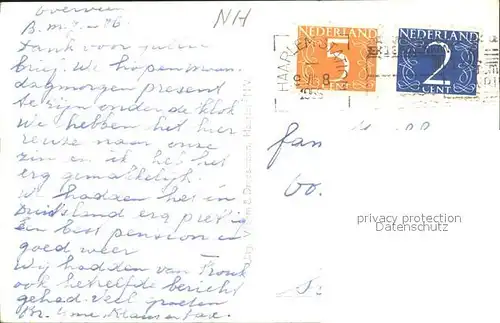 Overveen
NH
B.m.
Dank voor jullie
brief. We hopen maan-
dagmorgen present
te zijn onder de klok
We hebben het hier
reuze naar onze
zin en ik heb het
erg gemakkelijk.
We hadden het in
Duitsland erg prettig
Een best pension en
goed weer
Wij hadden van
ook hetzelfde bericht
gehad. Veel groeten
NEDERLAND
5
CENT
NEDERLAND
2
CENT
HAARLEM STATION
8
fam
privacy protection
Datenschutz